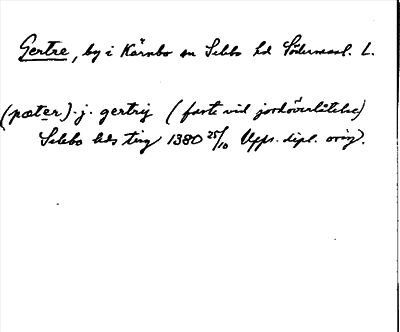 Gertre, by i Kärnbo sn Selebo hd Södermanl. L.
(pæter) · j. gertrij (faste vid jordöverlåtelse)
Selebo hds ting 1380 25/10 Upps. dipl. orig.